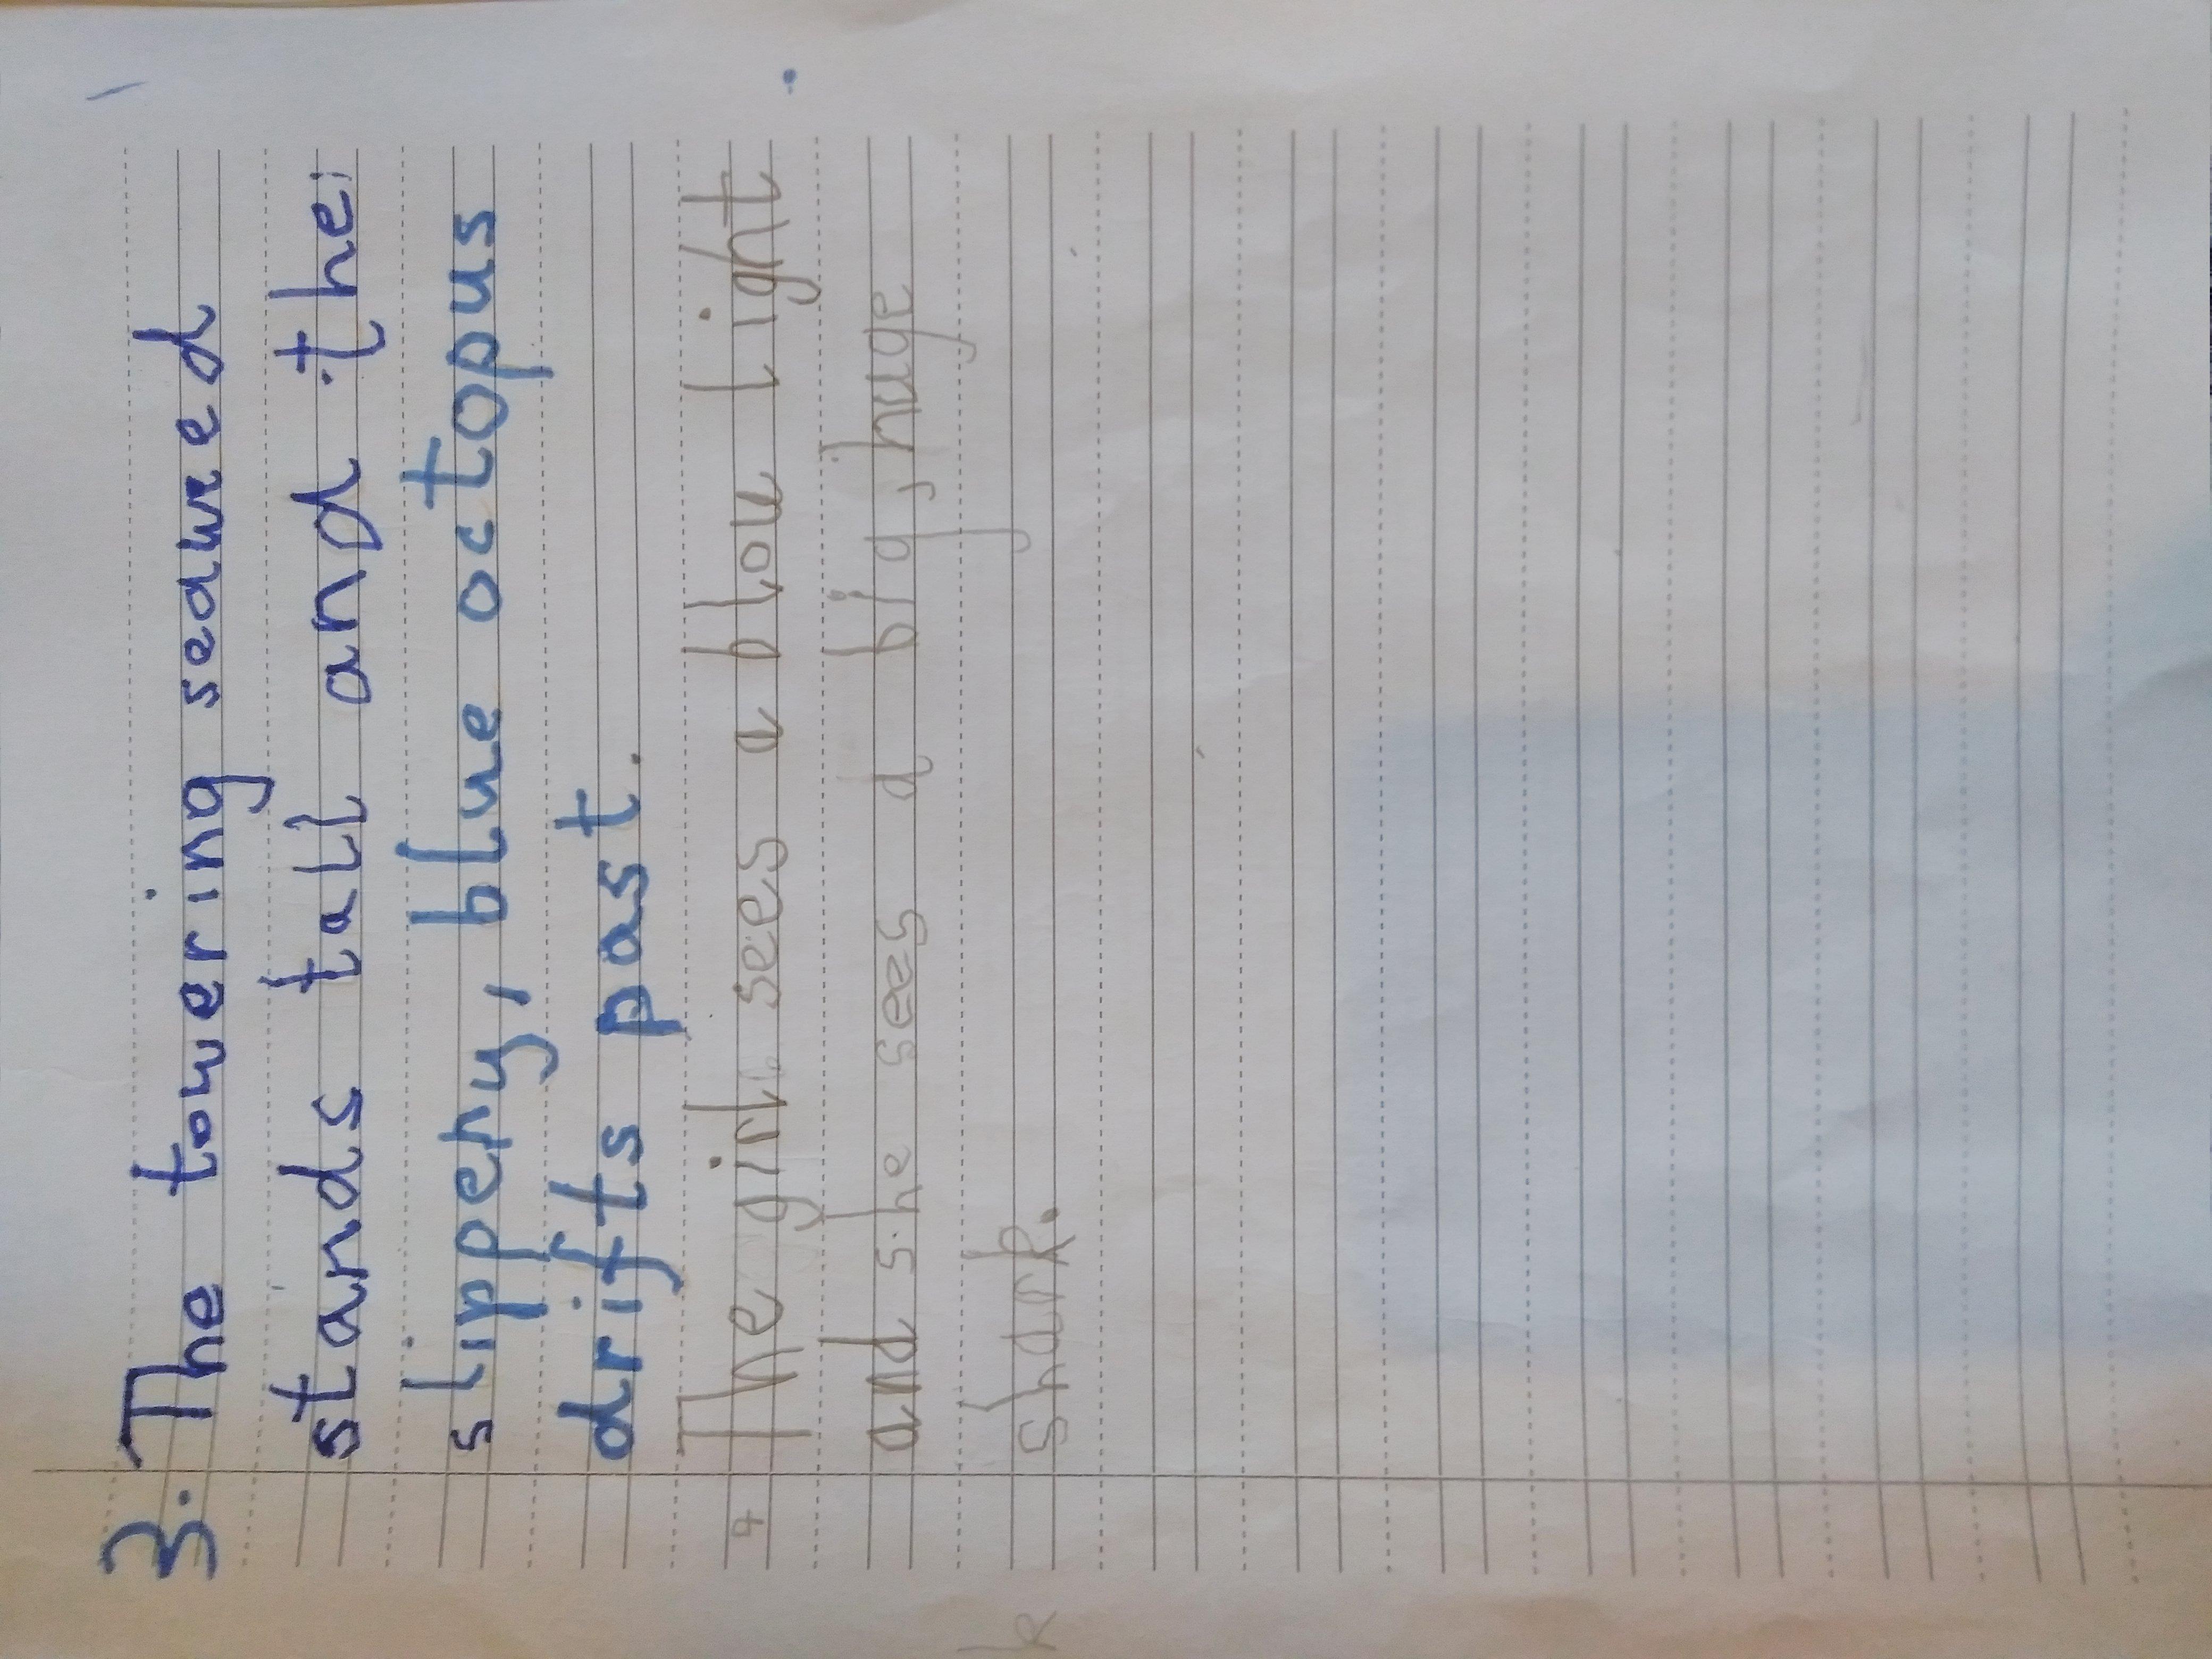 3. The towering seaweed
stands tall and the
slippery, blue octopus
drifts past.
4 The girl sees a blou light
and she sees a big, huge
shark.
k